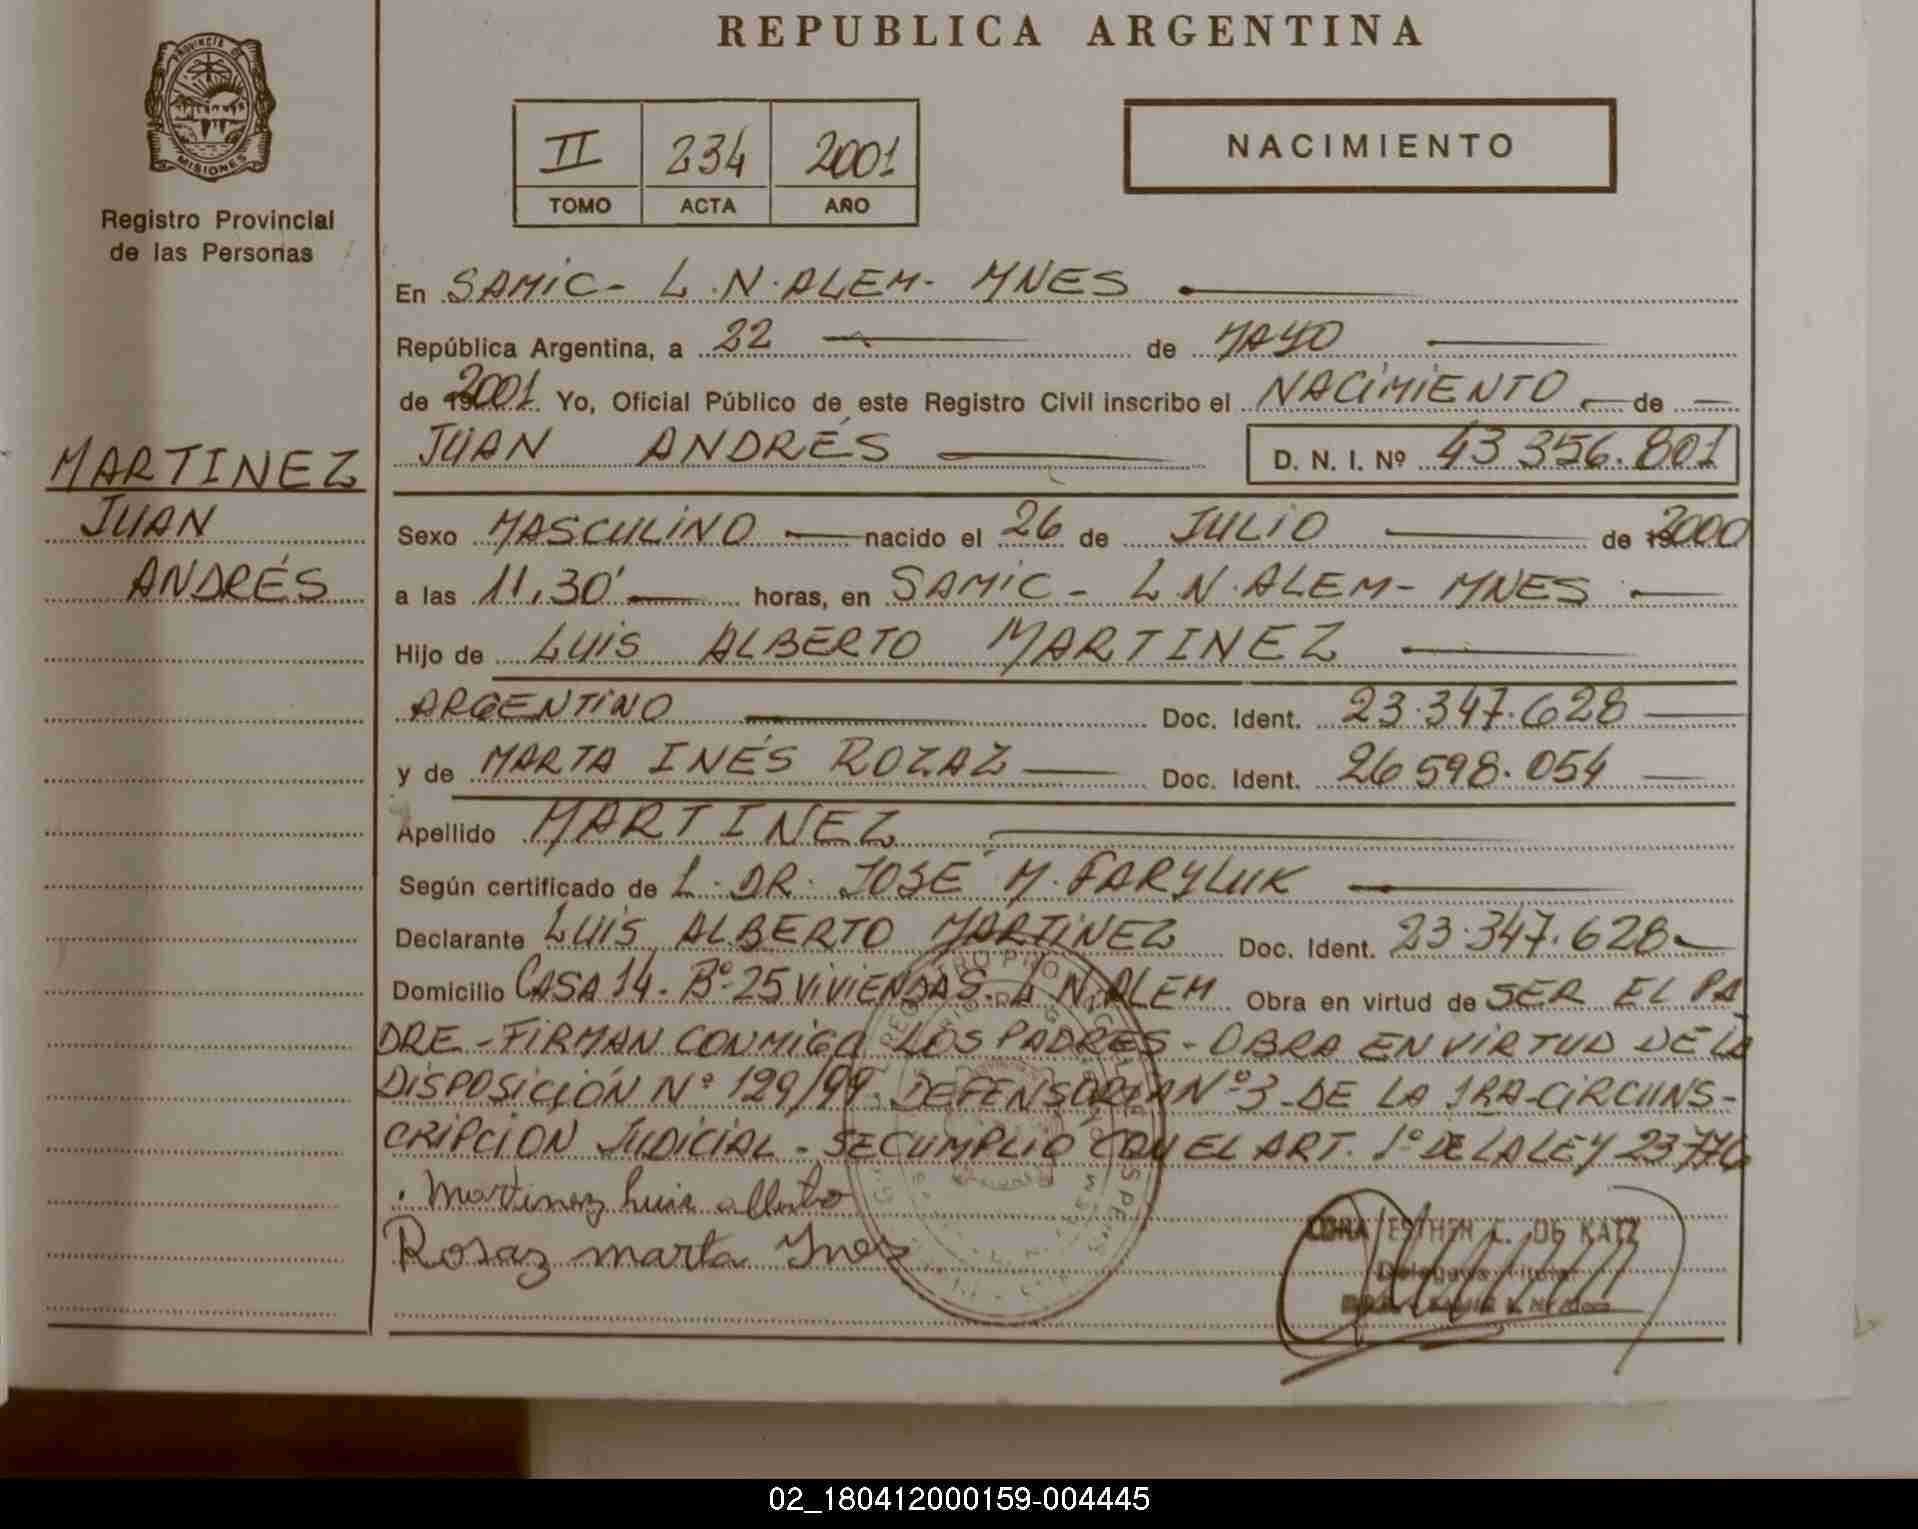 REPUBLICA ARGENTINA
PROVINCIA DE
MISIONES
Registro Provincial
de las Personas
II 234 2001
TOMO ACTA AÑO
NACIMIENTO
En SAMIC- L.N.ALEM- MNES
República Argentina, a 22 de MAYO
de 2001 Yo, Oficial Público de este Registro Civil inscribo el NACIMIENTO de
JUAN ANDRÉS D. N. I. Nº 43 356.801
MARTINEZ
JUAN
ANDRÉS
Sexo MASCULINO nacido el 26 de JULIO de 2000
a las 11,30' horas, en SAMIC- L.N.ALEM- MNES
Hijo de LUIS ALBERTO MARTINEZ
ARGENTINO Doc. Ident. 23.347.628
y de MARTA INÉS ROZAZ Doc. Ident. 26 598.054
Apellido MARTINEZ
Según certificado de L. DR. JOSÉ M. FARYLUK
Declarante LUIS ALBERTO MARTINEZ Doc. Ident. 23.347.628
Domicilio CASA 14. Bº 25 VIVIENDAS. L N.ALEM Obra en virtud de SER EL PA
DRE - FIRMAN CONMIGO LOS PADRES - OBRA EN VIRTUD DE LA
DISPOSICIÓN Nº 129/99. DEFENSORIA Nº 3 - DE LA 1RA-CIRCUNS-
CRIPCION JUDICIAL - SE CUMPLIO CON EL ART. 1º DE LA LEY 23776
Martinez Luis alberto
Rosaz marta Ynez
ESTHER L. DE KATZ
02_180412000159-004445